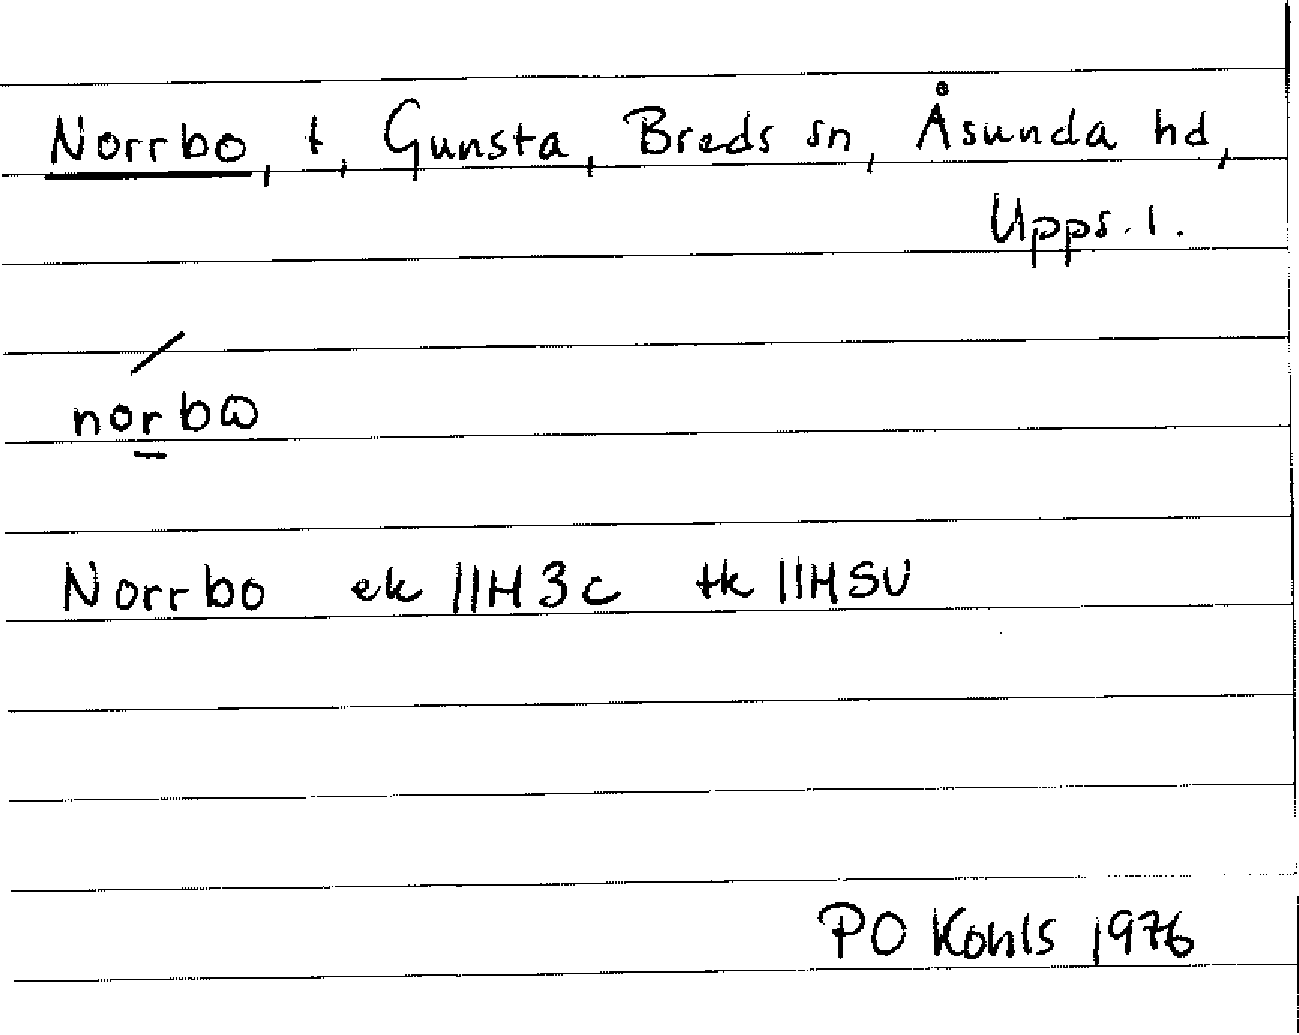 Norrbo, t, Gunsta, Breds sn, Åsunda hd,
Upps. l.
norbɷ
Norrbo ek 11H3c tk 11HSV
PO Kohls 1976